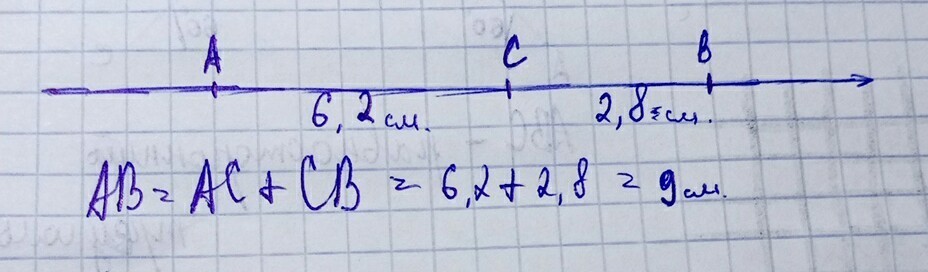 A C B
6,2 см. 2,8 см.
AB = AC + CB = 6,2 + 2,8 = 9 см.